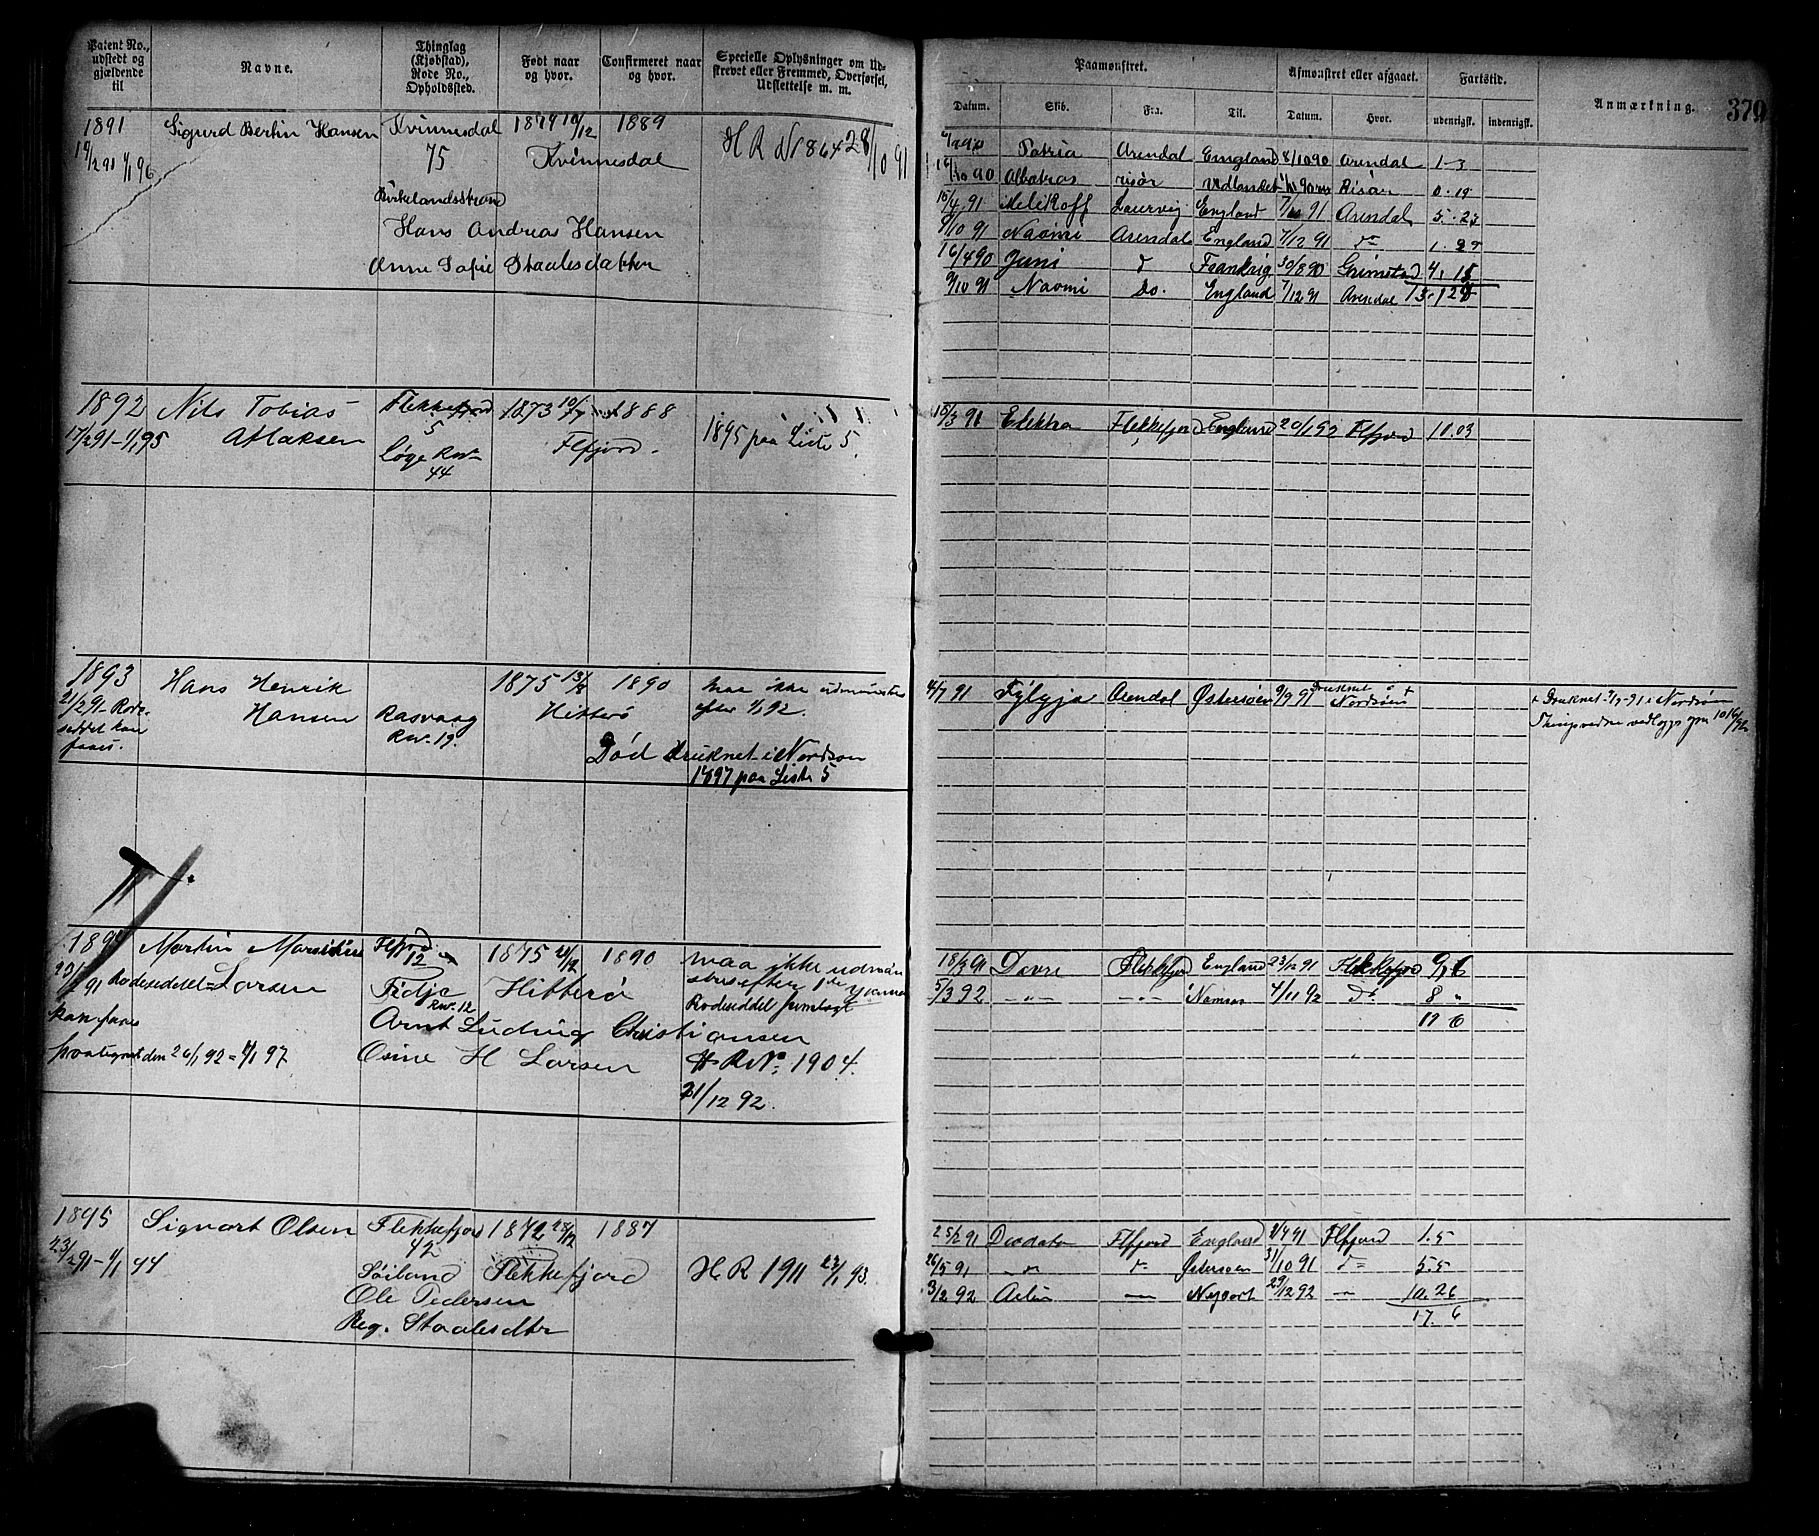 Patent No.,
udstedt og
gjældende
til
Navne.
Thinglag
(Kjøbstad),
Rode No.,
Opholdssted.
Født naar
og hvor.
Confirmeret naar
og hvor.
Specielle Oplysninger om Ud-
strevet eller Fremmed, Overførsel,
Udslettelse m. m.
Paamønstret.
Afmønstret eller afgaaet.
Fartstid.
Anmærkning.
370
Datum.
Skib.
Fra.
Til.
Datum.
Hvor.
udenrigsk.
indenrigsk.
1891
Sigurd Bertin Hansen
Kvinnesdal
1874 10/12
1889
H R No 864 28/10 91
19/2 91 1/1 96
75
Kvinnesdal
Birkelandsstrand
Hans Andreas Hansen
Anne Sofie Staalesdatter
Patria Arendal England 8/10 90 Arendal 1-3
16/10 90 Albatros risör Udlandet Risör 0.19
15/4 91 Melikoff Laurvig England 7/ 91 Arendal 5.23
9/10 91 Naomi Arendal England 7/12 91 do 1.27
16/4 90 Juni d Frankrig 30/8 90 Grimstad 4.15
9/10 91 Naomi do. England 7/12 91 Arendal 13.128
1892
Nils Tobias
Aslaksen
Flekkefjord
5
1873 10/7
1888
1895 paa Liste 5.
17/2 91-1/1 95
Flfjord.
Løge Rnr
44
15/3 91 Elektra Flekkefjord England 20/1 92 Flfjord 10.03
1893
Hans Henrik
Hansen
1875 13/8
1890
maa ikke udmønstres
efter 1/1 92.
21/2 91 Rode-
seddel kan
faaes.
Rasvaag
Rnr. 19.
Hitterø
Død druknet i Nordsøen
1897 paa Liste 5
4/7 91 Fylgja Arendal Østersøen 9/9 91 Druknet i
Nordsøen
+ Druknet 9/9-91 i Nordsøen
1894
Martin Marsilius
Larsen
Flfjord
12
1875
1890
maa ikke udmøn-
stres efter 1de Januar
Rodeseddel fremlagt
Rodeseddel
kan faaes
Fidje
Rnr. 12
Hitterø
Arnt Ludvig Christiansen
Osine H Larsen
H R No. 1904.
31/12 92.
den 26/1 92 = 1/1 97
18/3 91 Dovre Flekkefjord England 23/12 91 Flekkefjord 9.6
5/3 92 -"- -"- Namsos 4/11 92 do 8 "
17 6
1895
Sigvart Olsen
Flekkefjord
42
1872 28/12
1887
23/2 91-1/1 44
Søiland
Flekkefjord
H R 1911 23/1 93.
Ole Pedersen
Reg. Staalesdtr
25/2 91 Deodata Flfjord England 3/4 91 Flfjord 1.5
26/5 91 -"- Østersøen 31/10 91 do 5.5
3/12 92 Newport 29/12 92 10.26
17. 6